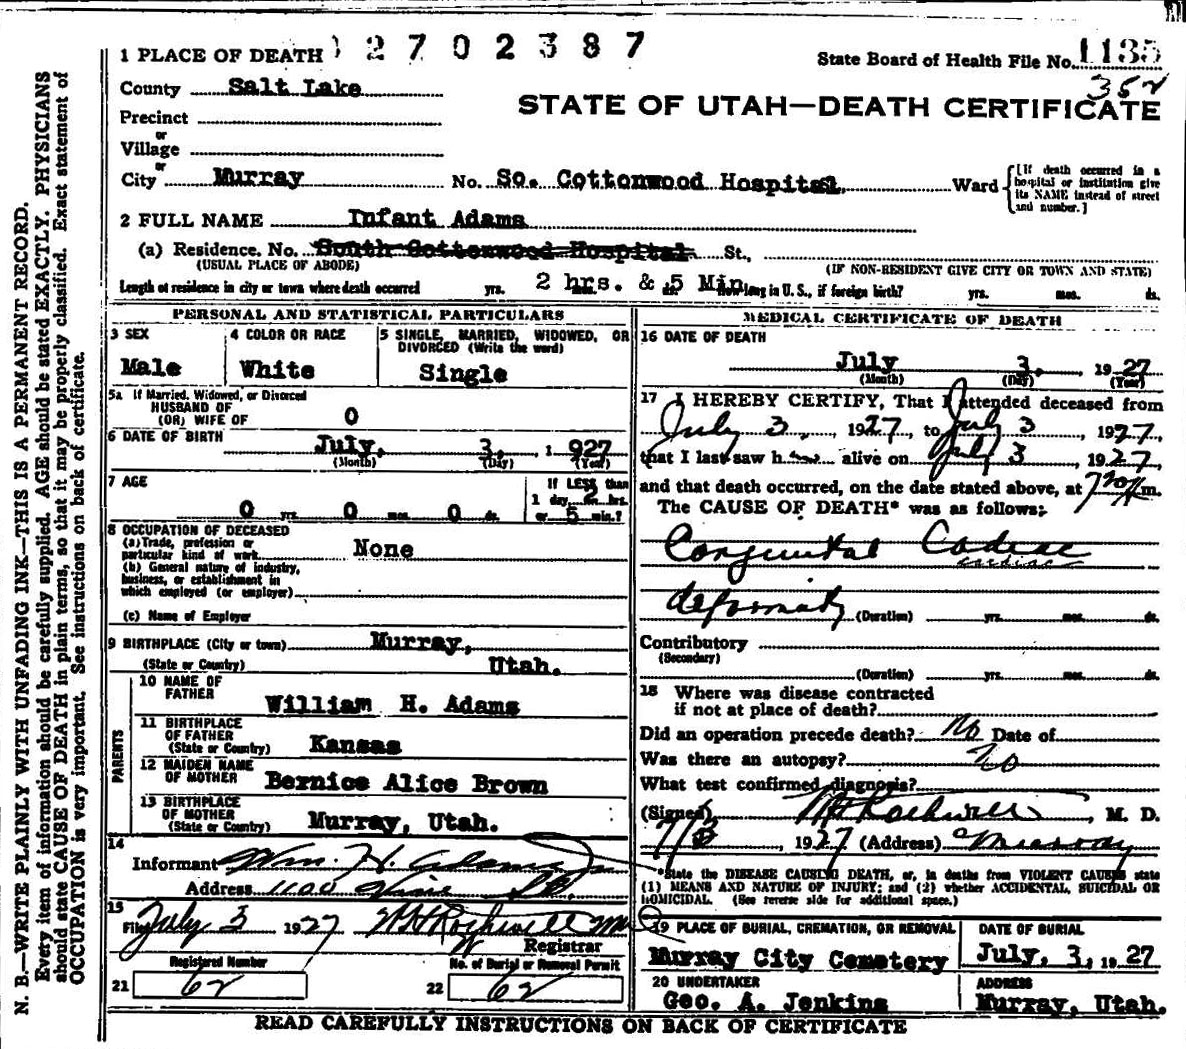 1 PLACE OF DEATH 2702387
State Board of Health File No. 1135
352
County Salt Lake
STATE OF UTAH—DEATH CERTIFICATE
Precinct
or
Village
or
City Murray No. So. Cottonwood Hospital Ward
[If death occurred in a hospital or institution give its NAME instead of street and number.]
2 FULL NAME Infant Adams
(a) Residence. No. South Cottonwood Hospital St.,
(USUAL PLACE OF ABODE) (IF NON-RESIDENT GIVE CITY OR TOWN AND STATE)
Length of residence in city or town where death occurred yrs. 2 hrs. & 5 Min. How long in U. S., if foreign birth? yrs. mos. ds.
PERSONAL AND STATISTICAL PARTICULARS
3 SEX
Male
4 COLOR OR RACE
White
5 SINGLE, MARRIED, WIDOWED, OR
DIVORCED (Write the word)
Single
5a If Married, Widowed, or Divorced
HUSBAND OF
(OR) WIFE OF 0
6 DATE OF BIRTH July, 3, 1927
(Month) (Day) (Year)
7 AGE
0 yrs. 0 mos. 0 ds.
If LESS than
1 day 2 hrs.
or 5 min.?
8 OCCUPATION OF DECEASED
(a) Trade, profession or
particular kind of work None
(b) General nature of industry,
business, or establishment in
which employed (or employer)
(c) Name of Employer
9 BIRTHPLACE (City or town) Murray,
(State or Country) Utah.
PARENTS
10 NAME OF
FATHER William H. Adams
11 BIRTHPLACE
OF FATHER
(State or Country) Kansas
12 MAIDEN NAME
OF MOTHER Bernice Alice Brown
13 BIRTHPLACE
OF MOTHER
(State or Country) Murray, Utah.
14
Informant Wm. H. Adams Jr
Address 1100 Vine St.
15
Filed July 3 1927 Rockwell
Registrar
Registered Number
21 62
No. of Burial or Removal Permit
22 62
MEDICAL CERTIFICATE OF DEATH
16 DATE OF DEATH
July 3, 1927
(Month) (Day) (Year)
17 I HEREBY CERTIFY, That I attended deceased from
July 3, 1927, to July 3, 1927,
that I last saw h alive on July 3, 1927,
and that death occurred, on the date stated above, at m.
The CAUSE OF DEATH* was as follows:
Congenital Cadiac
cardiac
deformity (Duration) yrs. mos. ds.
Contributory
(Secondary)
(Duration) yrs. mos. ds.
18 Where was disease contracted
if not at place of death?
Did an operation precede death? No Date of
Was there an autopsy? No
What test confirmed diagnosis?
(Signed) Rockwell, M. D.
1927 (Address) Murray
*State the DISEASE CAUSING DEATH, or, in deaths from VIOLENT CAUSES state
(1) MEANS AND NATURE OF INJURY; and (2) whether ACCIDENTAL, SUICIDAL OR
HOMICIDAL. (See reverse side for additional space.)
19 PLACE OF BURIAL, CREMATION, OR REMOVAL
Murray City Cemetery
DATE OF BURIAL
July, 3, 1927
20 UNDERTAKER
Geo. A. Jenkins
ADDRESS
Murray, Utah.
READ CAREFULLY INSTRUCTIONS ON BACK OF CERTIFICATE
N. B.—WRITE PLAINLY WITH UNFADING INK—THIS IS A PERMANENT RECORD.
Every item of information should be carefully supplied. AGE should be stated EXACTLY. PHYSICIANS
should state CAUSE OF DEATH in plain terms, so that it may be properly classified. Exact statement of
OCCUPATION is very important. See instructions on back of certificate.